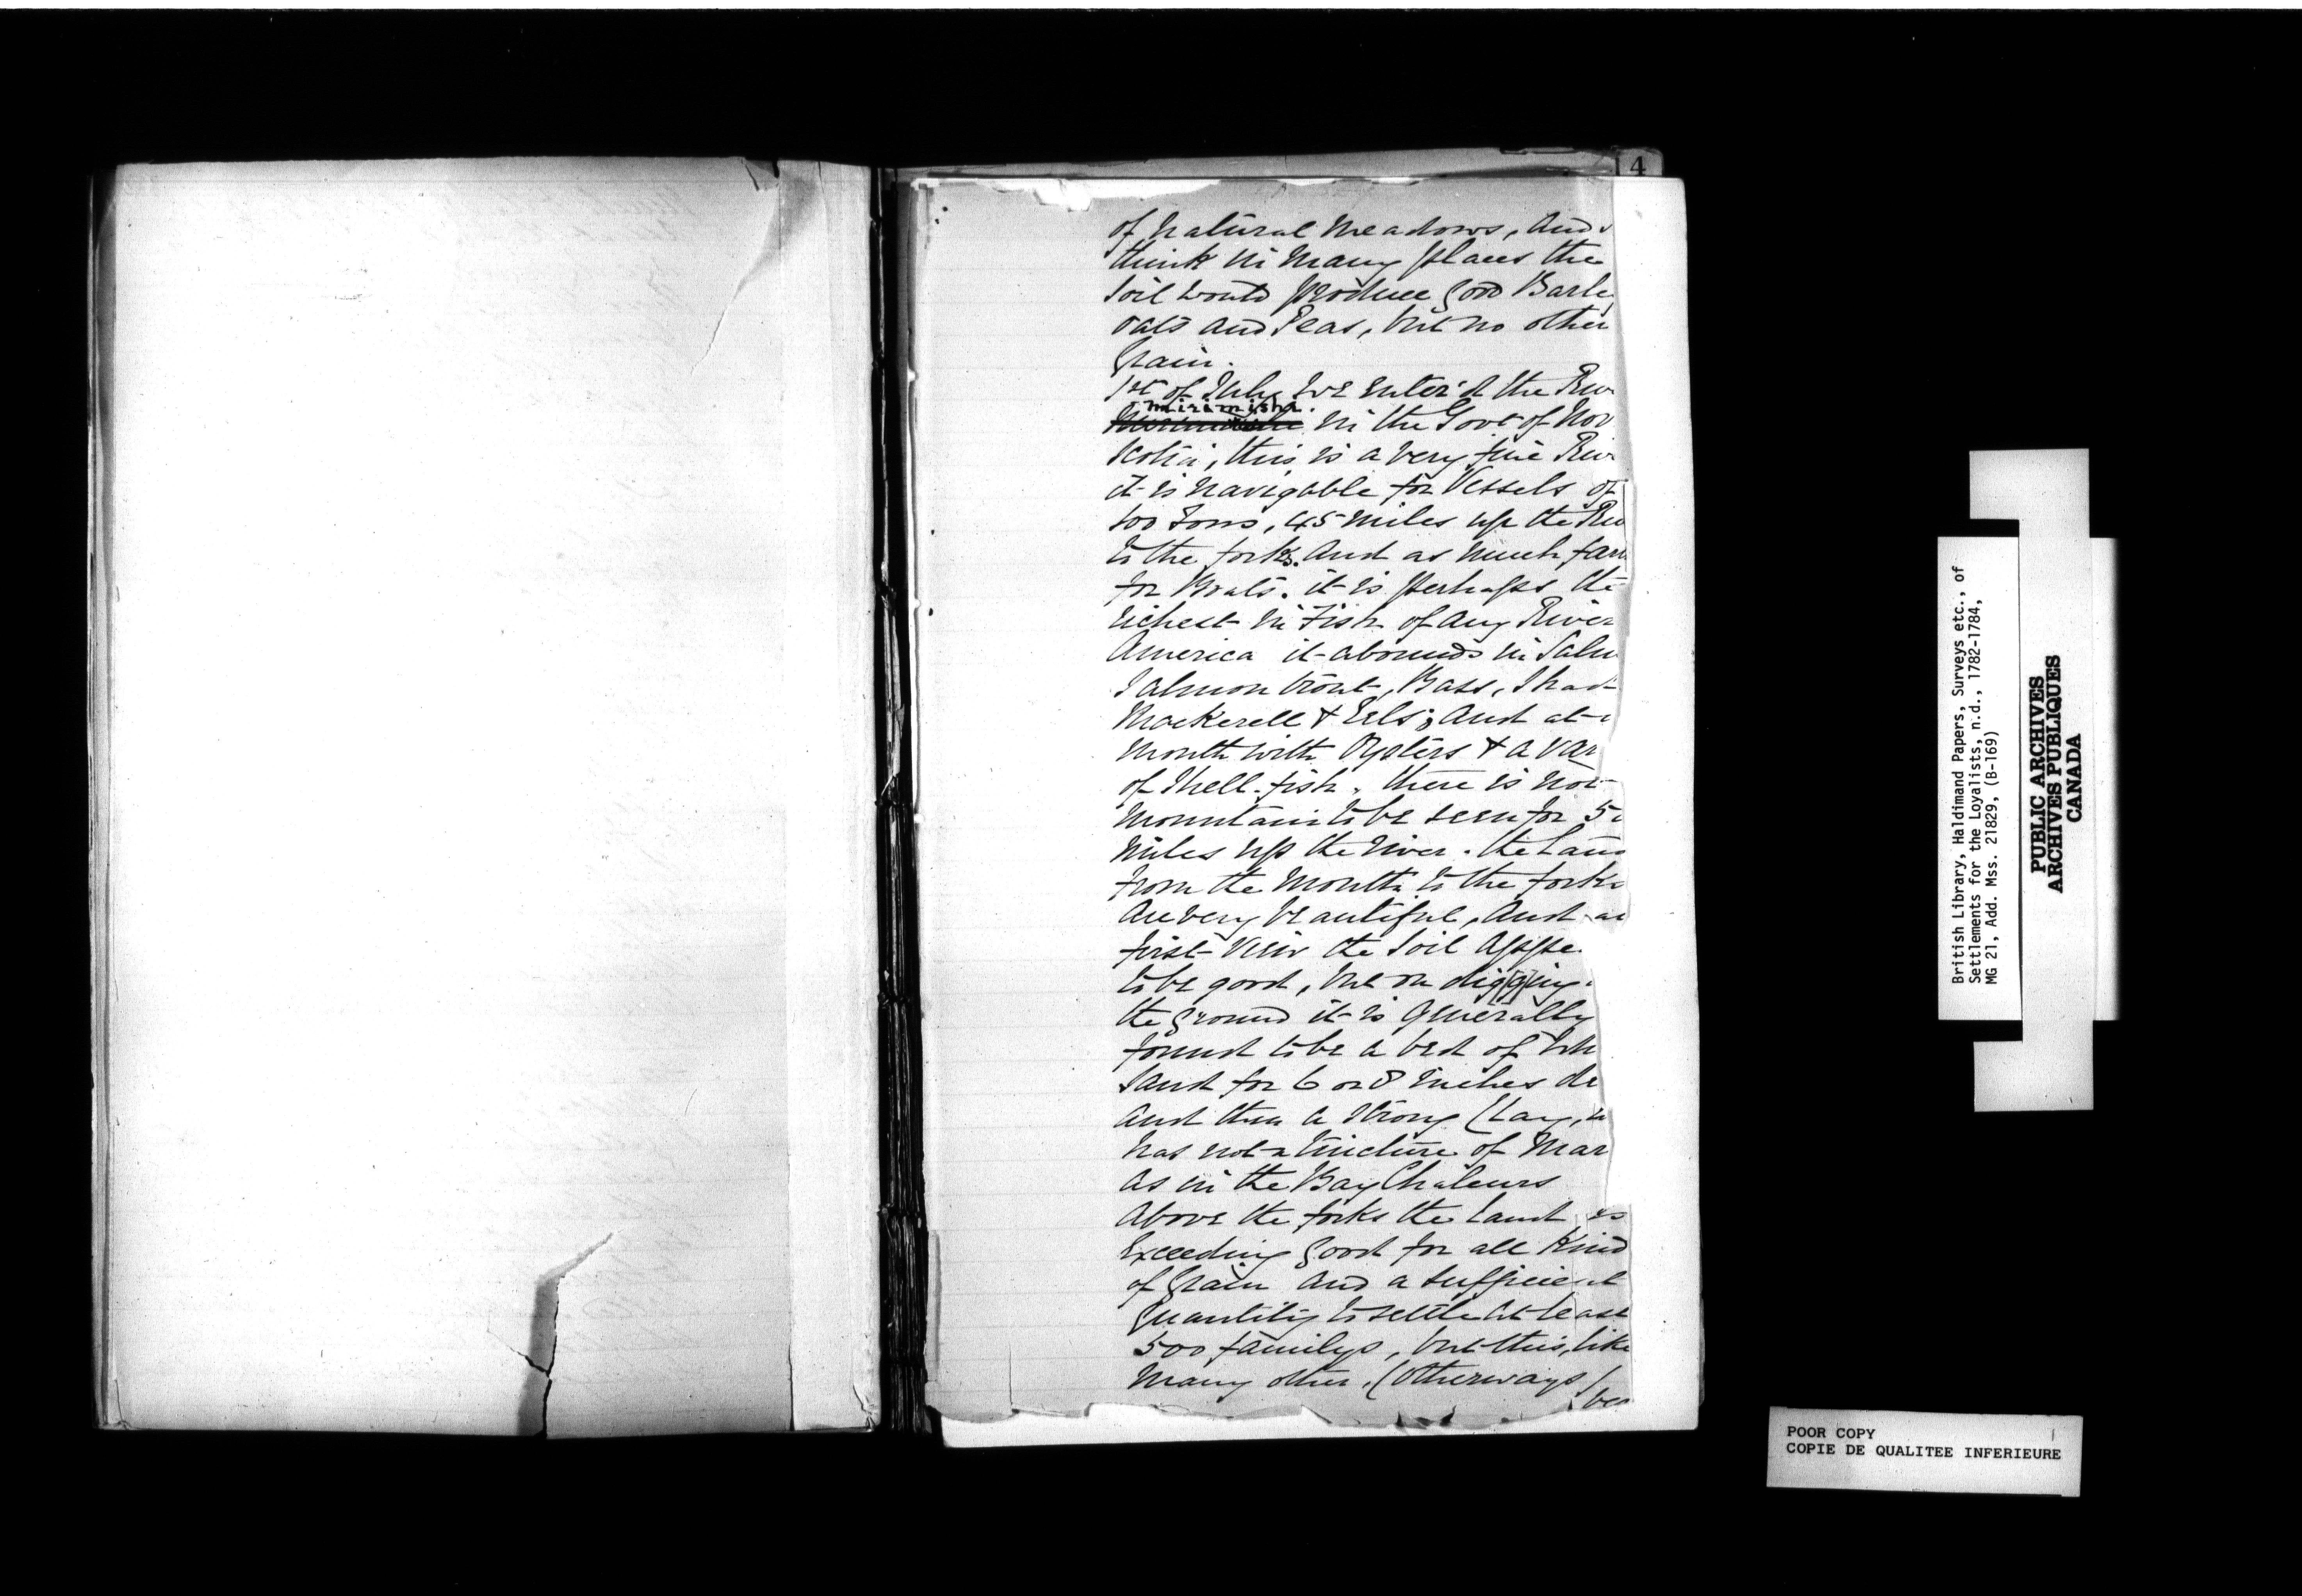 4
of natural meadows, and
think in many places the
soil would produce good Barle
oats and Peas, but no other
Grain.
1st of July we enter'd the Riv
mirimisha
in the Govt of Nov
Scotia, this is a very fine Riv
it is navigable for Vessels of
Tons, 45 miles up the Riv
to the forks. And as much far
for Boats. it is perhaps the
richest in Fish of any River
America it abounds in Salm
Salmon trout, Bass, Shad
Mackerell & Eels; and at
mouth with Oysters & a var
of Shell-fish. there is not
mountain to be seen for 5
miles up the river. the Land
from the Mouth to the forks
are very beautiful, and at
first view the Soil appe
to be good, but on digging
the ground it is generally
found to be a bed of Wh
Sand for 6 or 8 inches de
and then a strong Clay, w
has not a tincture of Mar
as in the Bay Chaleurs
Above the forks the Land is
Exceeding good for all Kind
of Grain and a sufficient
Quantity to settle at least
500 familys, but this, like
many other, (otherways)
ver
British Library, Haldimand Papers, Surveys etc., of
Settlements for the Loyalists, n.d., 1782-1784,
MG 21, Add. Mss. 21829, (B-169)
PUBLIC ARCHIVES
ARCHIVES PUBLIQUES
CANADA
POOR COPY
COPIE DE QUALITEE INFERIEURE